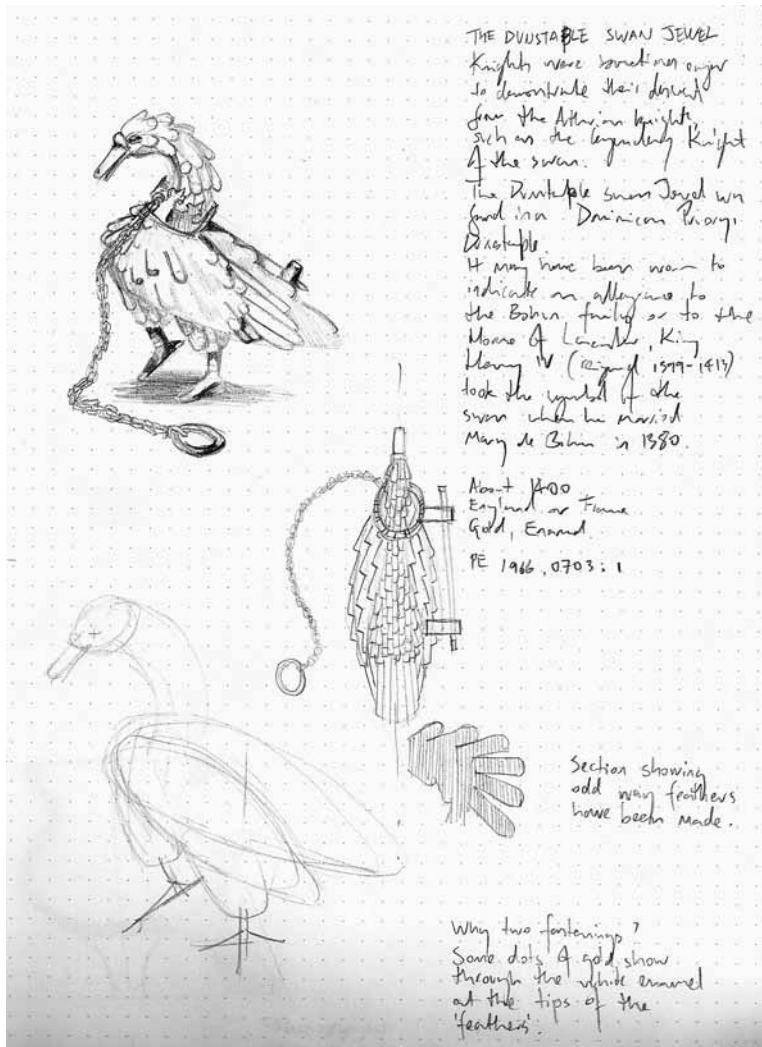 THE DUNSTABLE SWAN JEWEL
Knights were sometimes eager
to demonstrate their descent
from the Athurian knights,
such as the legendary Knight
of the swan.
The Dunstable swan Jewel was
found in a Dominican Priory,
Dunstable.
It may have been worn to
indicate an allegiance to
the Bohun family or to the
House of Lancaster, King
Henry IV (reigned 1399-1413)
took the symbol of the
swan when he married
Mary de Bohun in 1380.
About 1400
England or France
Gold, Enamel
PE 1966,0703:1
Section showing
odd way feathers
have been made.
Why two fastenings?
Some dots of gold show
through the white enamel
at the tips of the
'feathers'.